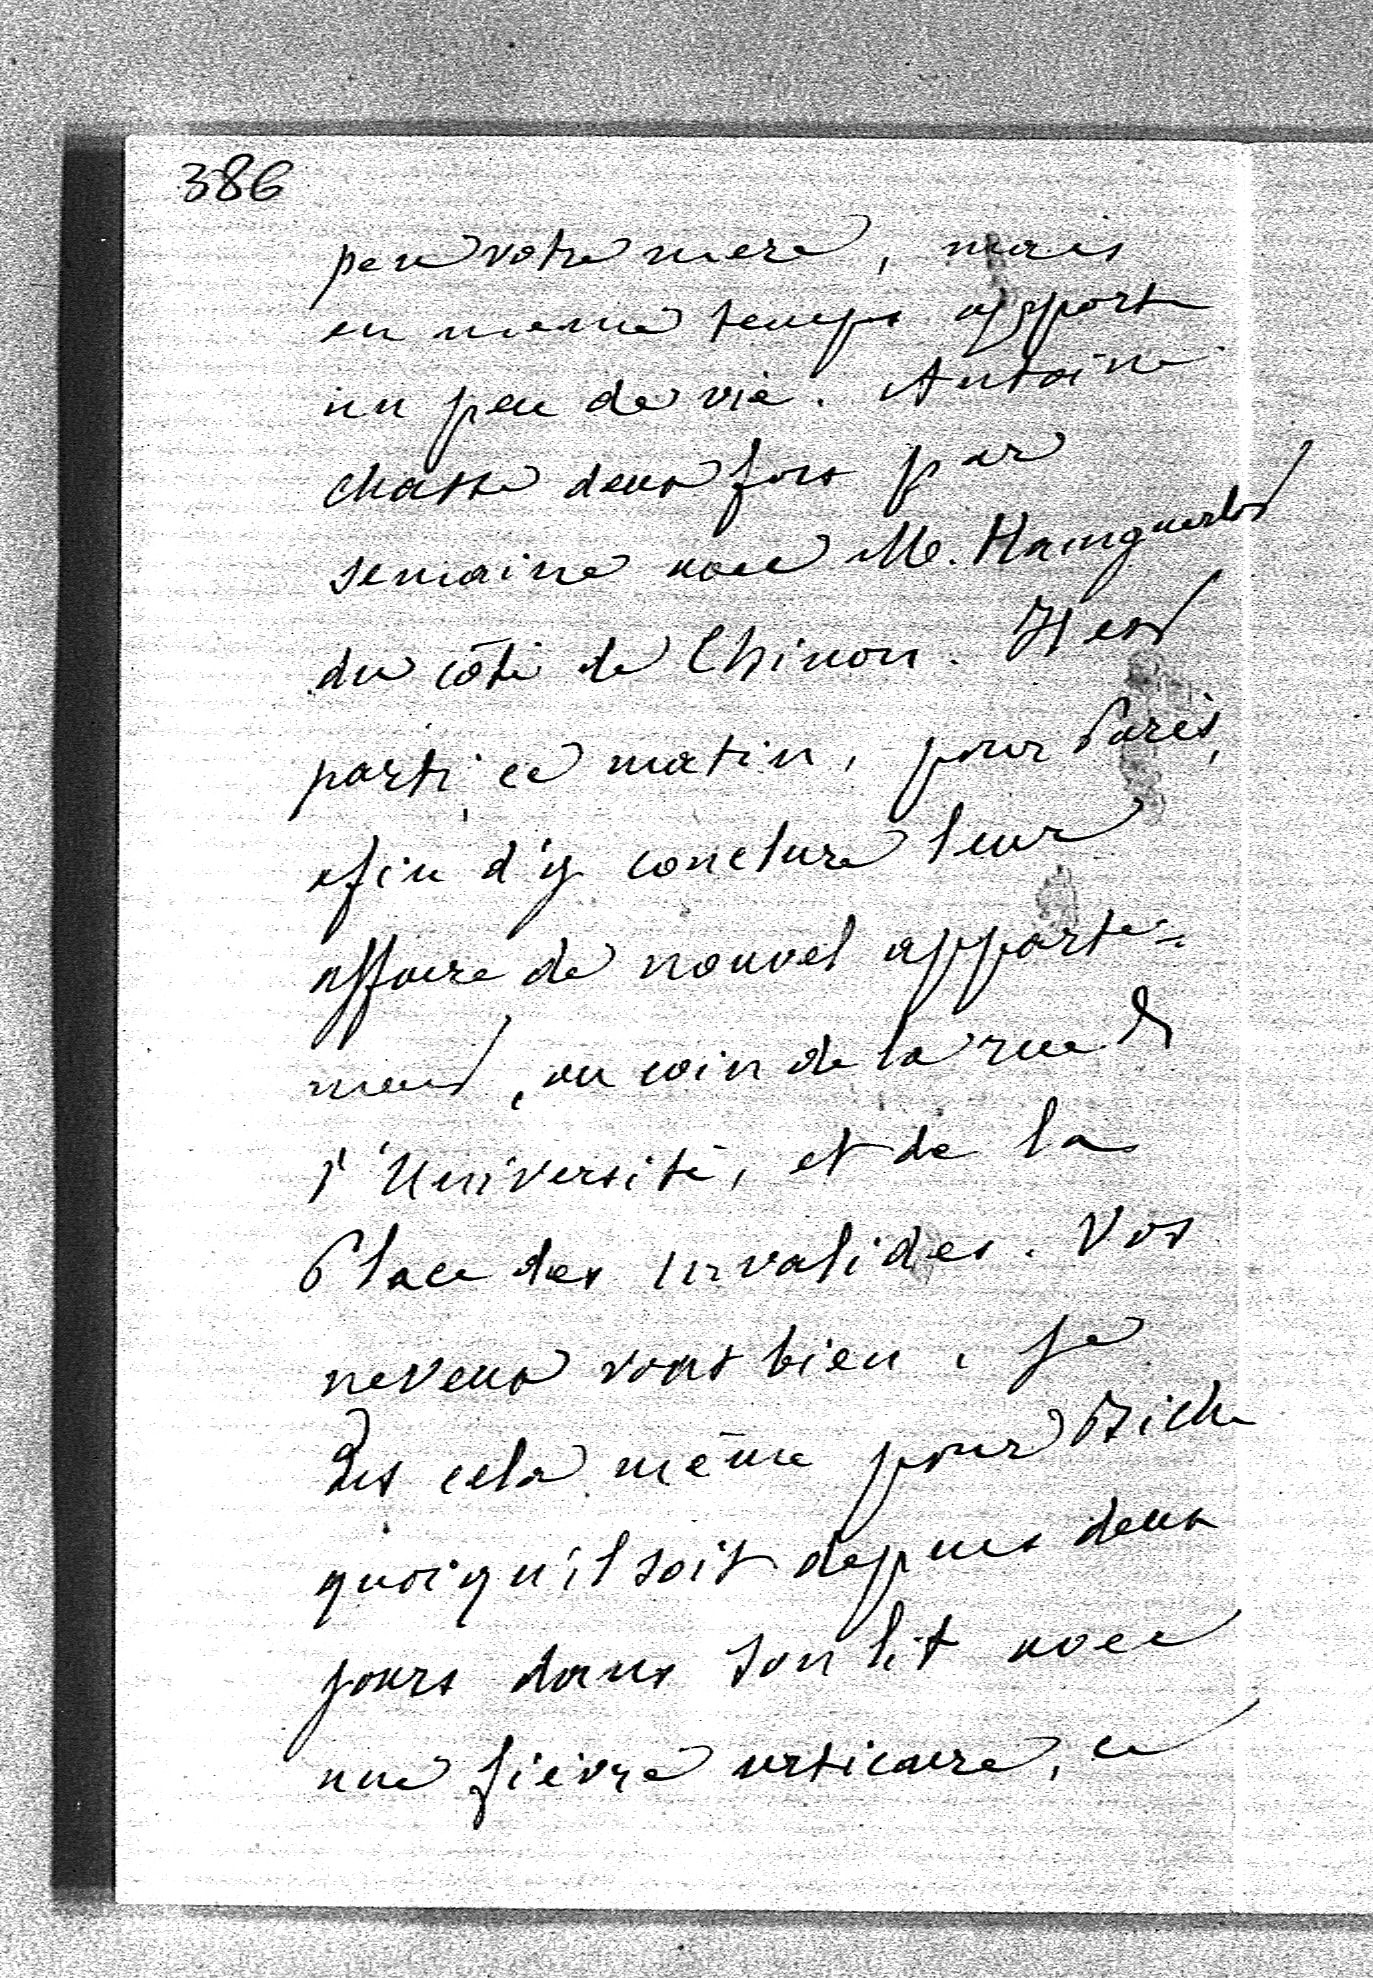 386
peu votre mere, mais
en meme temps apporte
un peu de vie. Antoine
chasse deux fois par
semaine avec M. Hainguerlot
du côté de Chinon. Il est
parti ce matin, pour Paris,
afin d'y conclure leur
affaire de nouvel apparte=
ment, au coin de la rue de
l'Université, et de la
Place des Invalides. Vos
neveux vont bien, je
dis cela même pour Biche
quoiqu'il soit depuis deux
jours dans son lit avec
une fièvre urticaire, ce